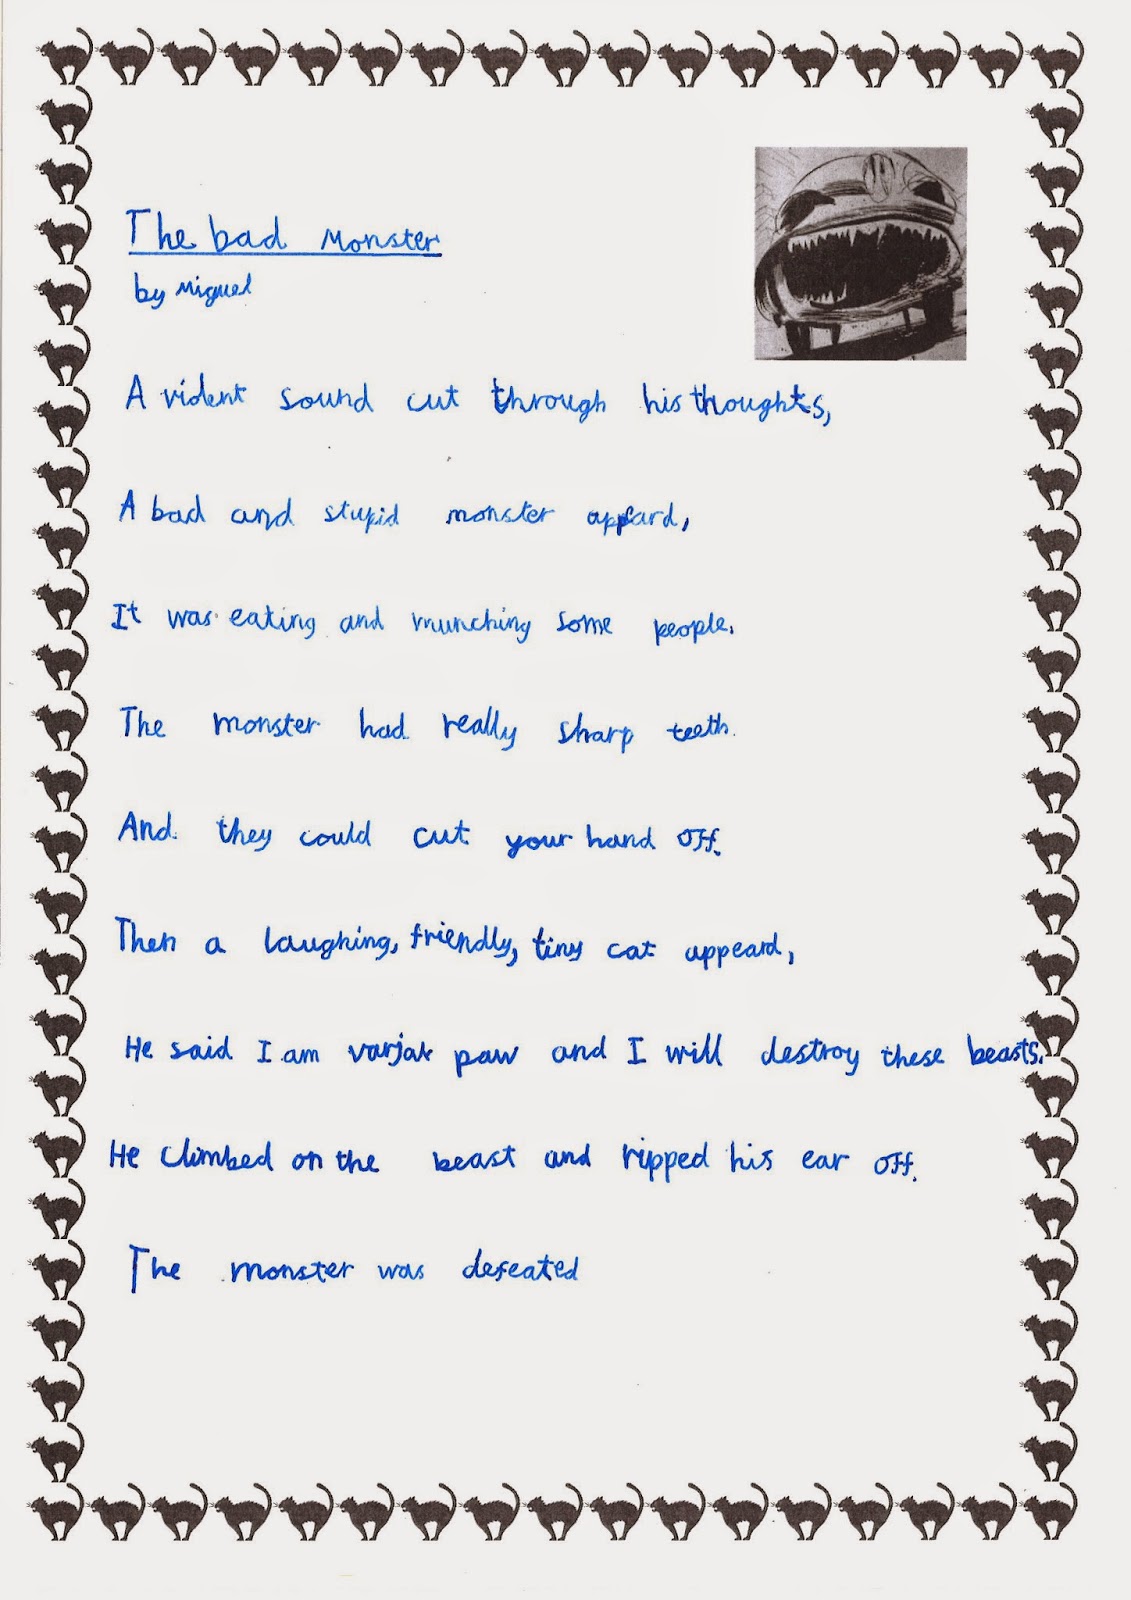 The bad Monster
by Miguel
A violent sound cut through his thoughts,
A bad and stupid monster appeard,
It was eating and munching some people.
The monster had really sharp teeth.
And they could cut your hand off.
Then a laughing, friendly, tiny cat appeard,
He said I am varjak paw and I will destroy these beasts.
He climbed on the beast and ripped his ear off.
The monster was defeated